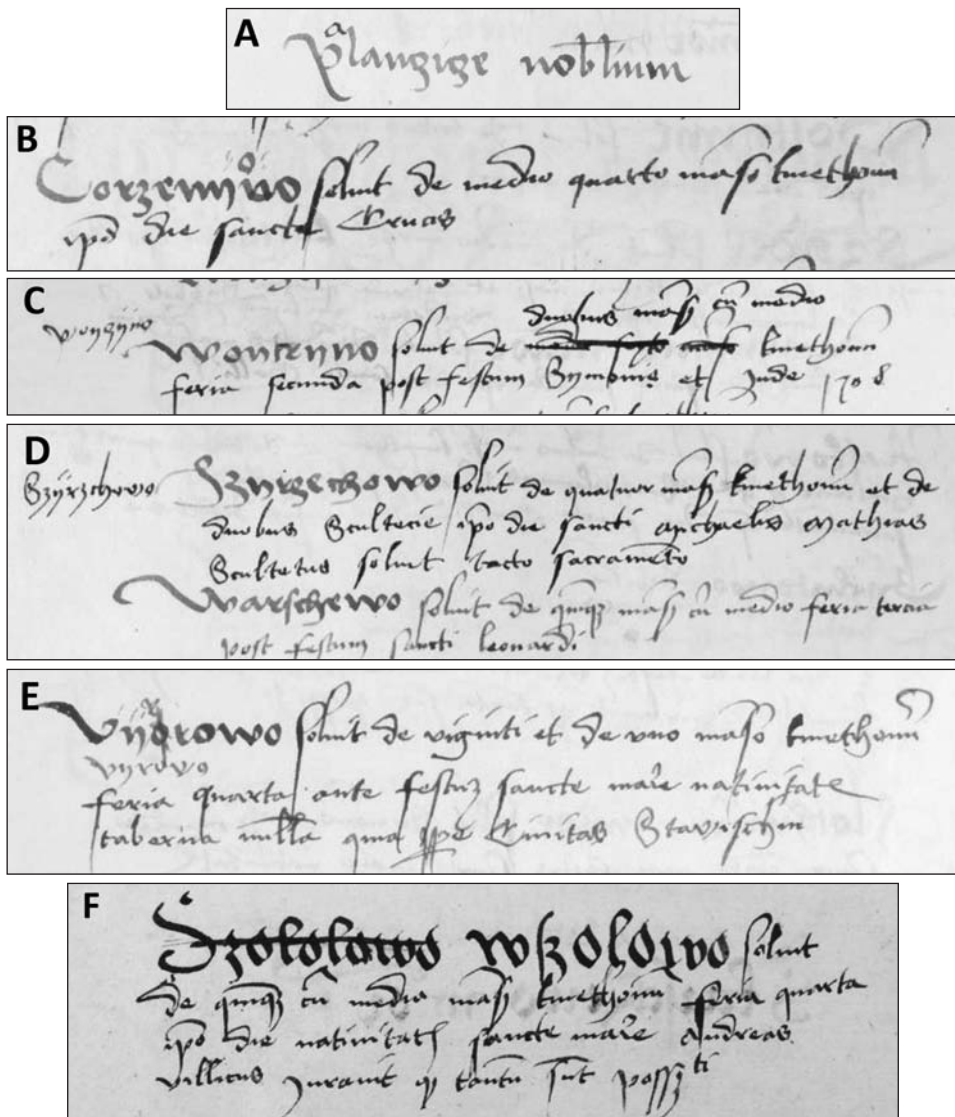 A
nobilium
B
Corzenywo soluit de medio quarto manso kmethonum
ipo die sancte Crucis
C
duobus mans cu medio
Wonczyno soluit de kmethonum
feria secunda post festum Symonis et Jude
D
Szyrzchowo Szyrzechowo soluit de quatuor mans kmethonum et de
duobus Scultecie ipo die sancti Michaelis Mathias
Scultetus soluit tacto sacrameto
Warschewo soluit de quinqz mans cu medio feria tercia
post festum sancti leonardi
E
Vydrowo soluit de viginti et de vno manso kmethonum
feria quarta ante festuz sancte marie natiuitate
taberna nulla quia Ciuitas Stawischin
F
soluit
de quinqz cu medio mans kmethonum feria quarta
ipo die natiuitat sancte marie Andreas
villicus Jurauit q tantu sut